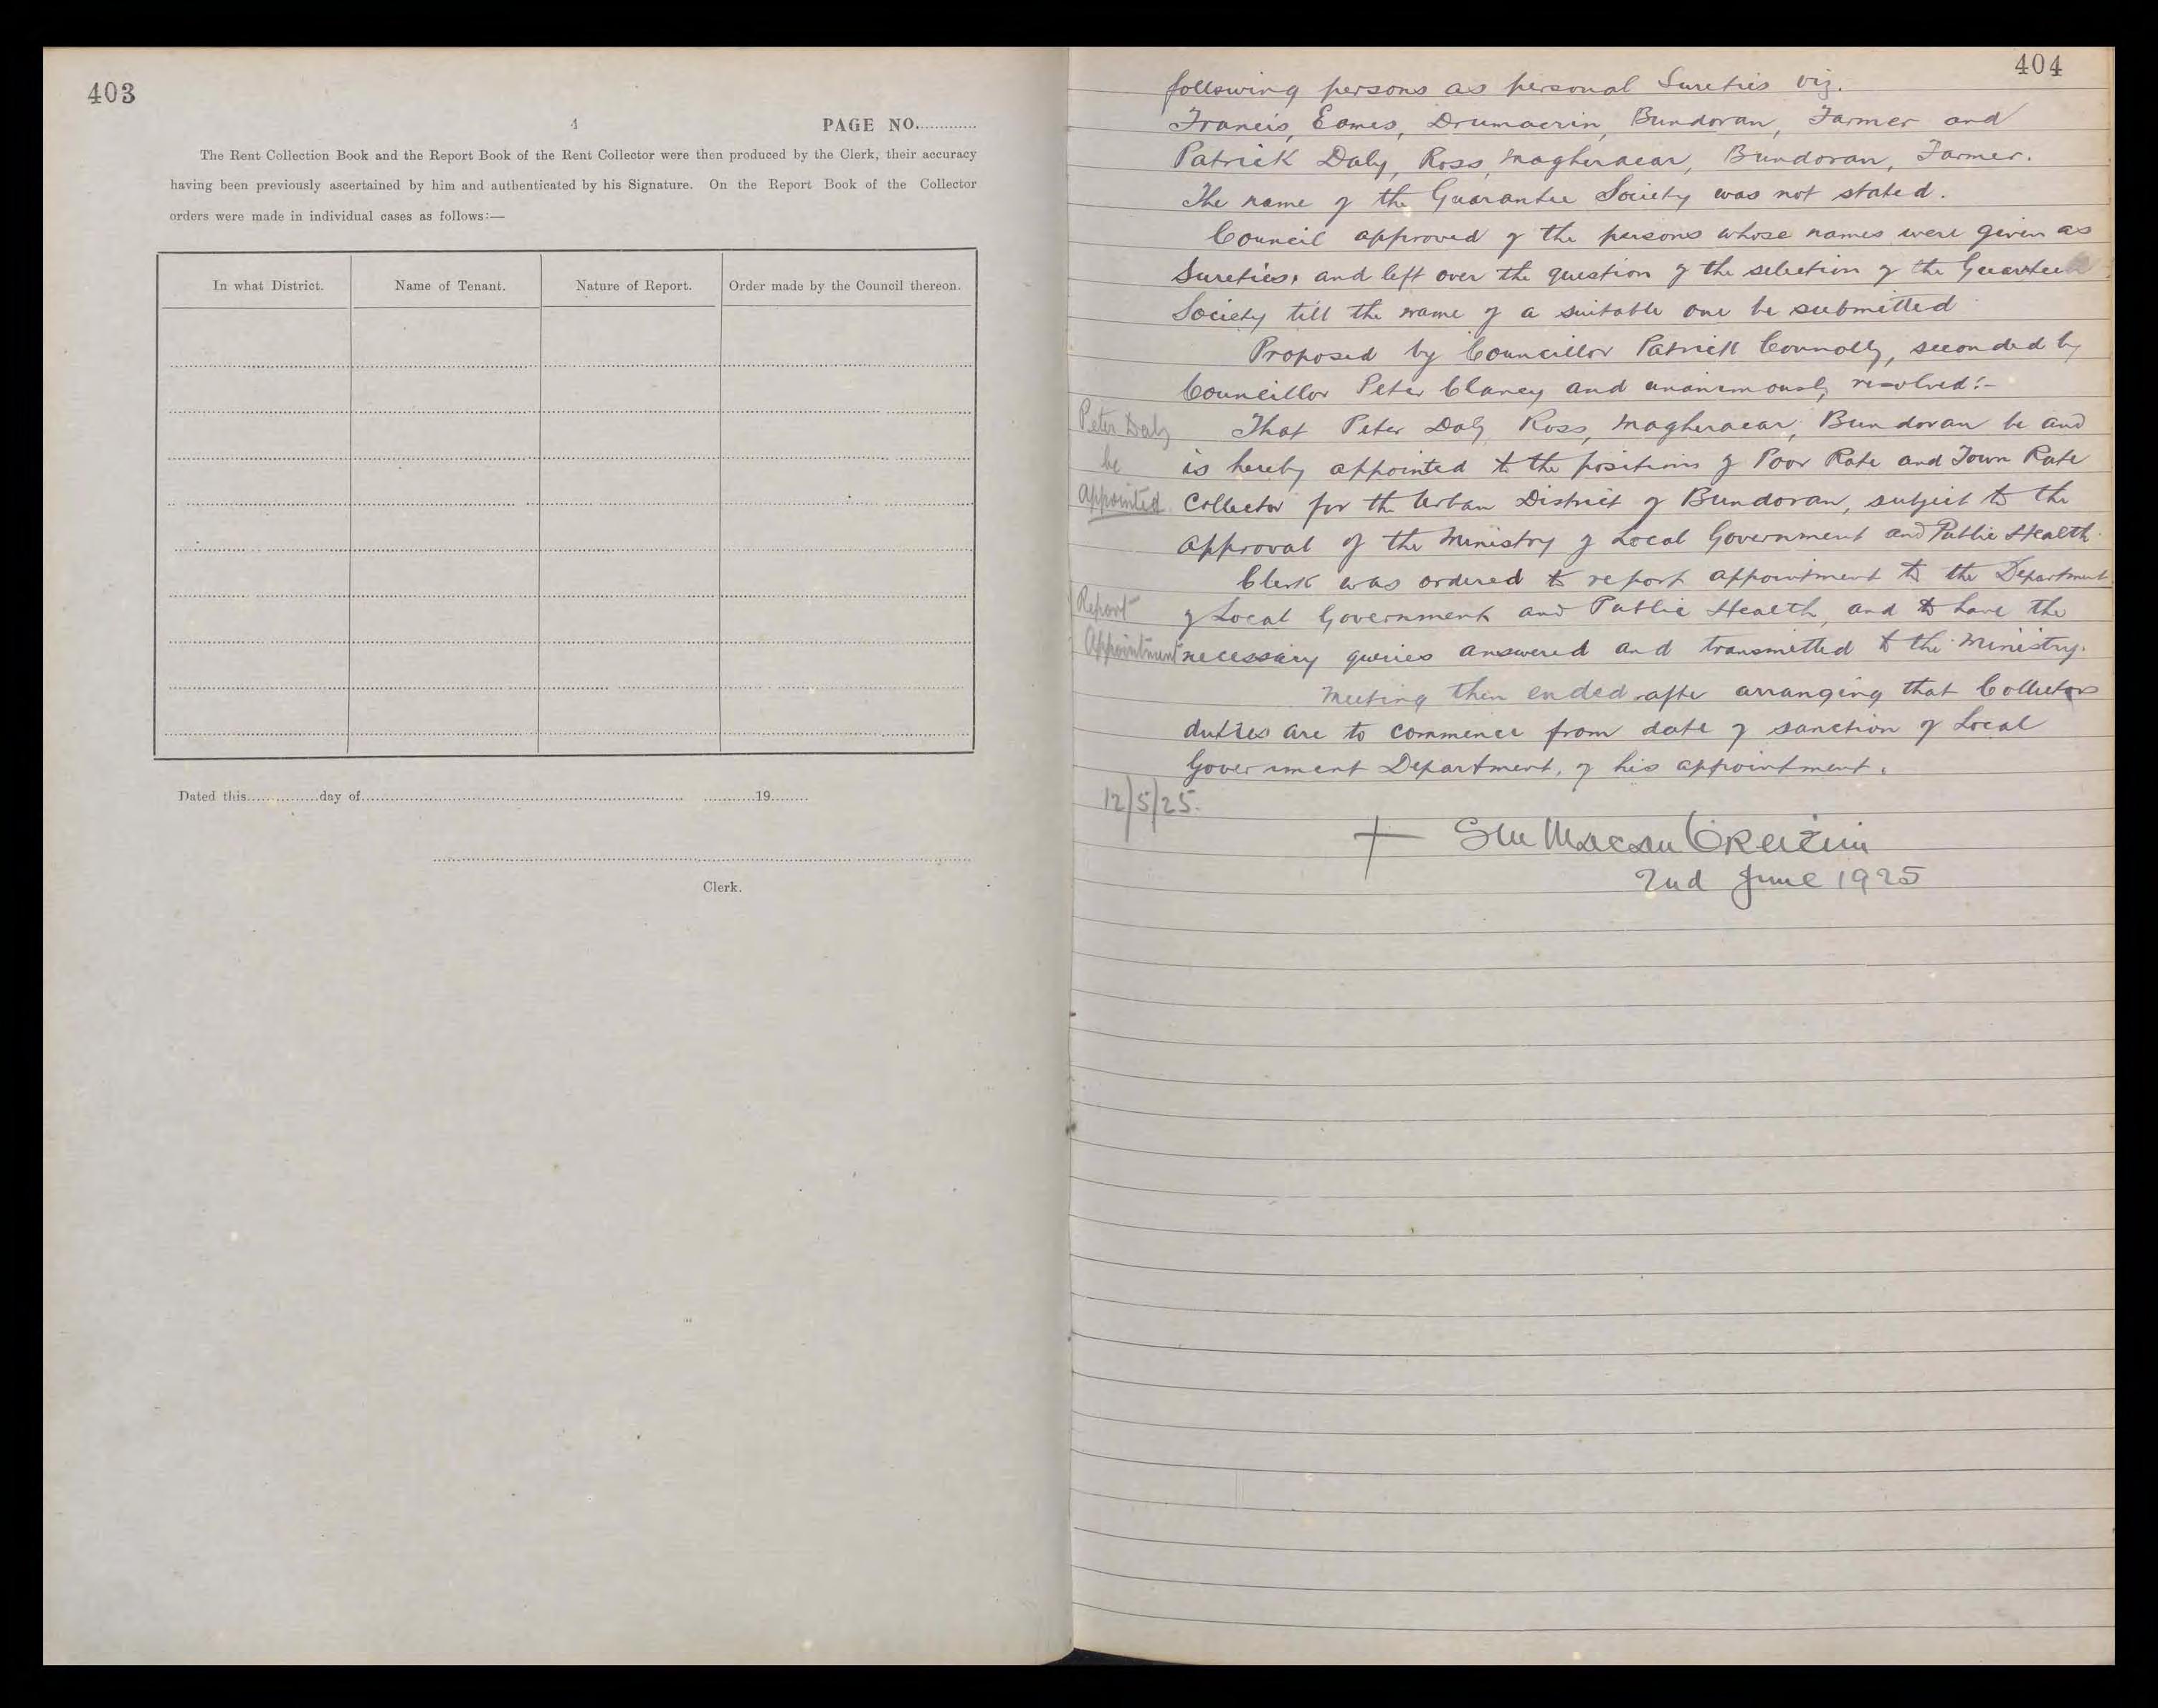 403
4
PAGE NO............
The Rent Collection Book and the Report Book of the Rent Collector were then produced by the Clerk, their accuracy
having been previously ascertained by him and authenticated by his Signature. On the Report Book of the Collector
orders were made in individual cases as follows:—
In what District. Name of Tenant. Nature of Report. Order made by the Council thereon.
Dated this...............day of.................................................................... ...........19........
Clerk.
404
following persons as personal Sureties viz.
Francis, Eames, Drumacrin, Bundoran, Farmer and
Patrick Daly, Ross, Magheracar, Bundoran, Farmer.
The name of the Guarantee Society was not stated.
Council approved of the persons whose names were given as
Sureties, and left over the question of the selection of the Guarantee
Society till the name of a suitable one be submitted
Proposed by Councillor Patrick Connolly, seconded by
Councillor Peter Clancy and unanimously resolved:-
Peter Daly
be
appointed
That Peter Daly Ross, Magheracar, Bundoran be and
is hereby appointed to the positions of Poor Rate and Town Rate
Collector for the Urban District of Bundoran, subject to the
approval of the Ministry of Local Government and Public Health.
Clerk was ordered to report appointment to the Department
Report
Appointment
of Local Government and Public Health, and to have the
necessary queries answered and transmitted to the Ministry.
Meeting then ended after arranging that Collectors
duties are to commence from date of sanction of Local
Government Department, of his appointment.
12/5/25.
2nd June 1925